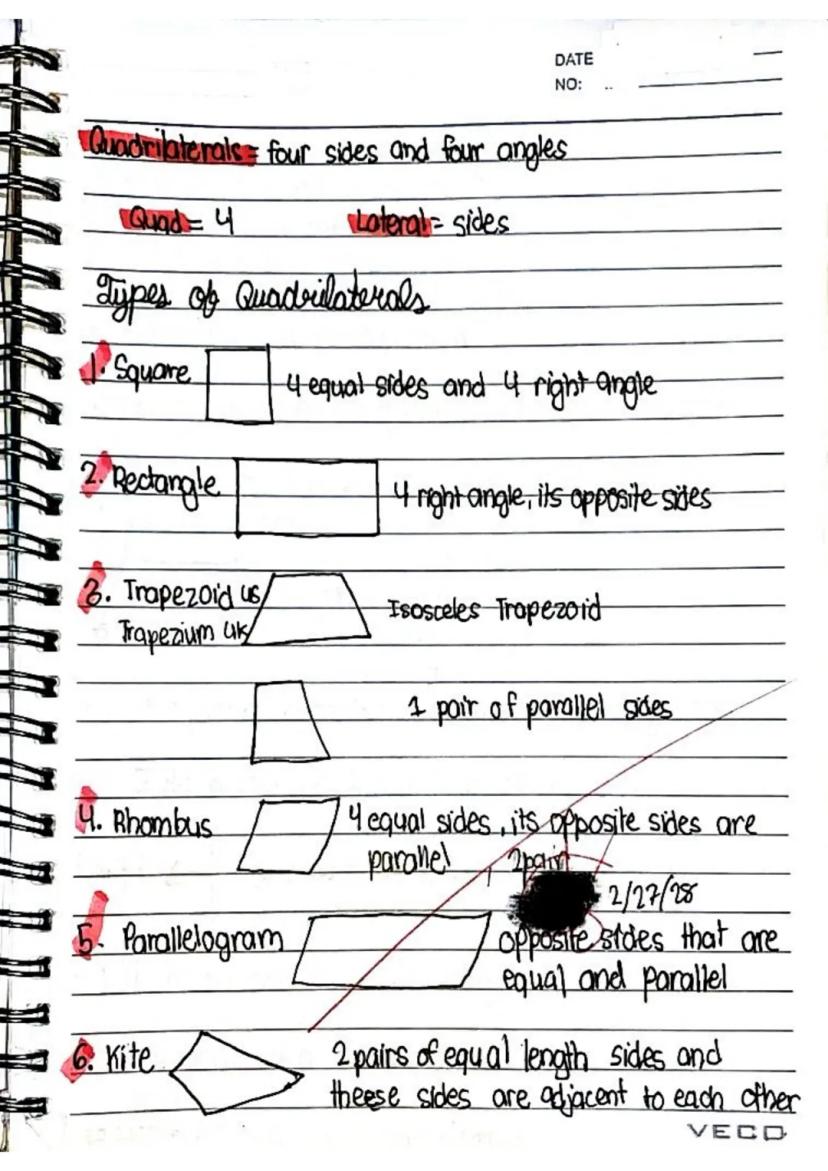 DATE
NO: ..
Quadrilaterals = four sides and four angles
Quad = 4 Lateral = sides
Types of Quadrilaterals
1. Square 4 equal sides and 4 right angle
2. Rectangle 4 right angle, its opposite sides
3. Trapezoid US
Trapezium UK
Isosceles Trapezoid
1 pair of parallel sides
4. Rhombus 4 equal sides, its opposite sides are
parallel 2pair
2/27/28
5. Parallelogram opposite sides that are
equal and parallel
6. Kite 2 pairs of equal length sides and
theese sides are adjacent to each other
VECO